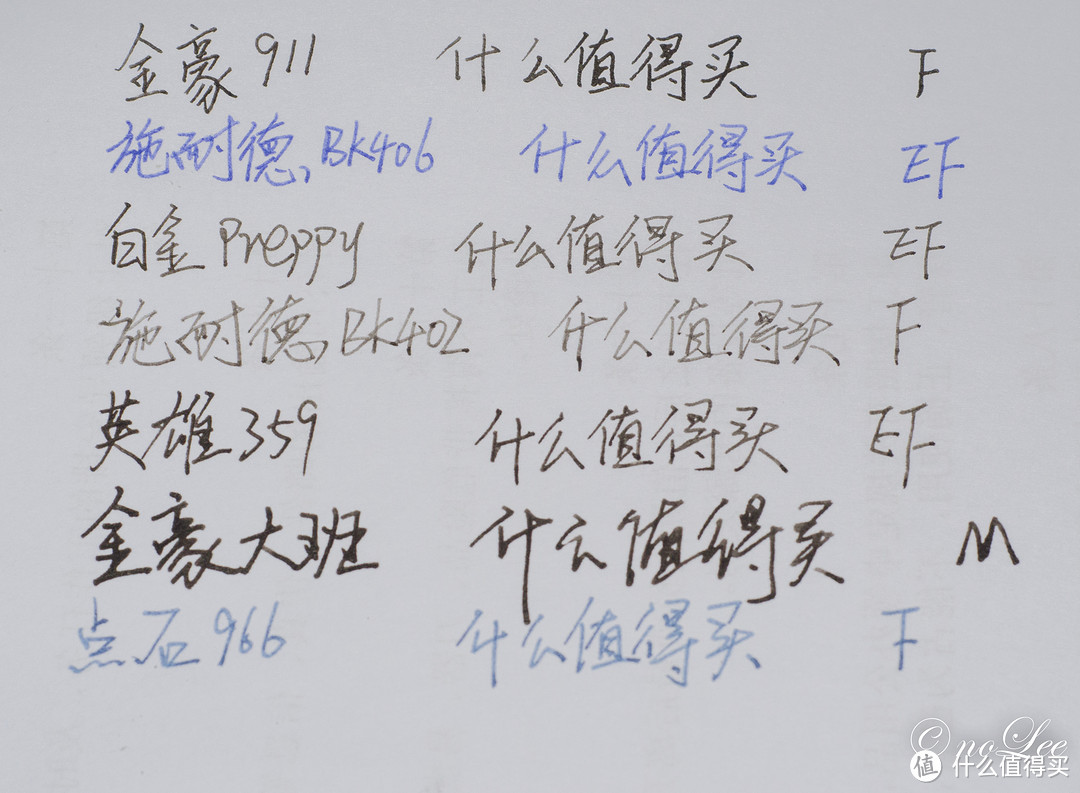 金豪911 什么值得买 F
施耐德BK406 什么值得买 EF
白金Preppy 什么值得买 EF
施耐德BK402 什么值得买 F
英雄359 什么值得买 EF
金豪大班 什么值得买 M
点石966 什么值得买 F
OnoLee
值 什么值得买